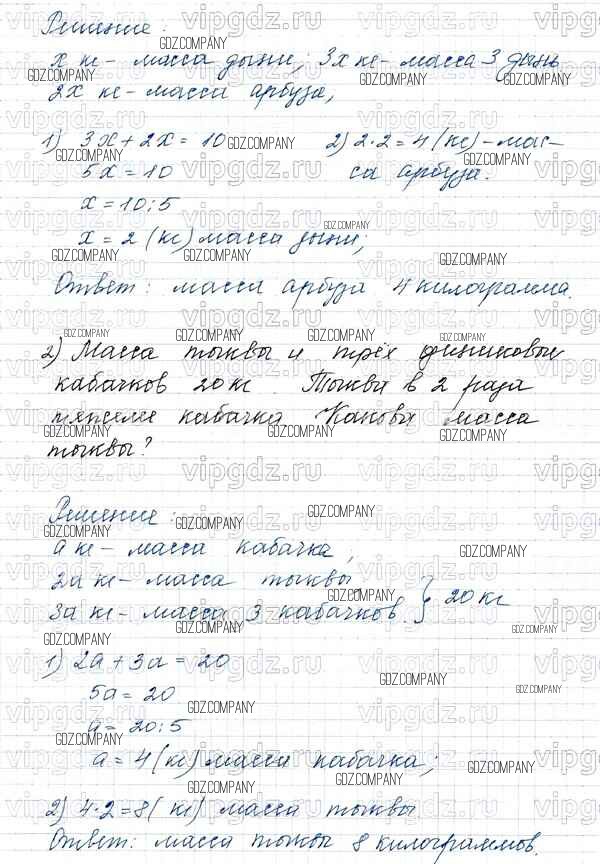 Решение:
x кг – масса дыни; 3x кг – масса 3 дынь
2x кг – масса арбуза,
1) 3x + 2x = 10 2) 2·2 = 4 (кг) – мас-
5x = 10 са арбуза.
x = 10 : 5
x = 2 (кг) масса дыни;
Ответ: масса арбуза 4 килограмма.
2) Масса тыквы и трёх одинаковых
кабачков 20 кг. Тыква в 2 раза
тяжелее кабачка. Какова масса
тыквы?
Решение:
a кг – масса кабачка,
2a кг – масса тыквы,
3a кг – масса 3 кабачков } 20 кг
1) 2a + 3a = 20
5a = 20
a = 20 : 5
a = 4 (кг) масса кабачка;
2) 4·2 = 8 (кг) масса тыквы
Ответ: масса тыквы 8 килограммов.
vipgdz.ru
GDZ.COMPANY